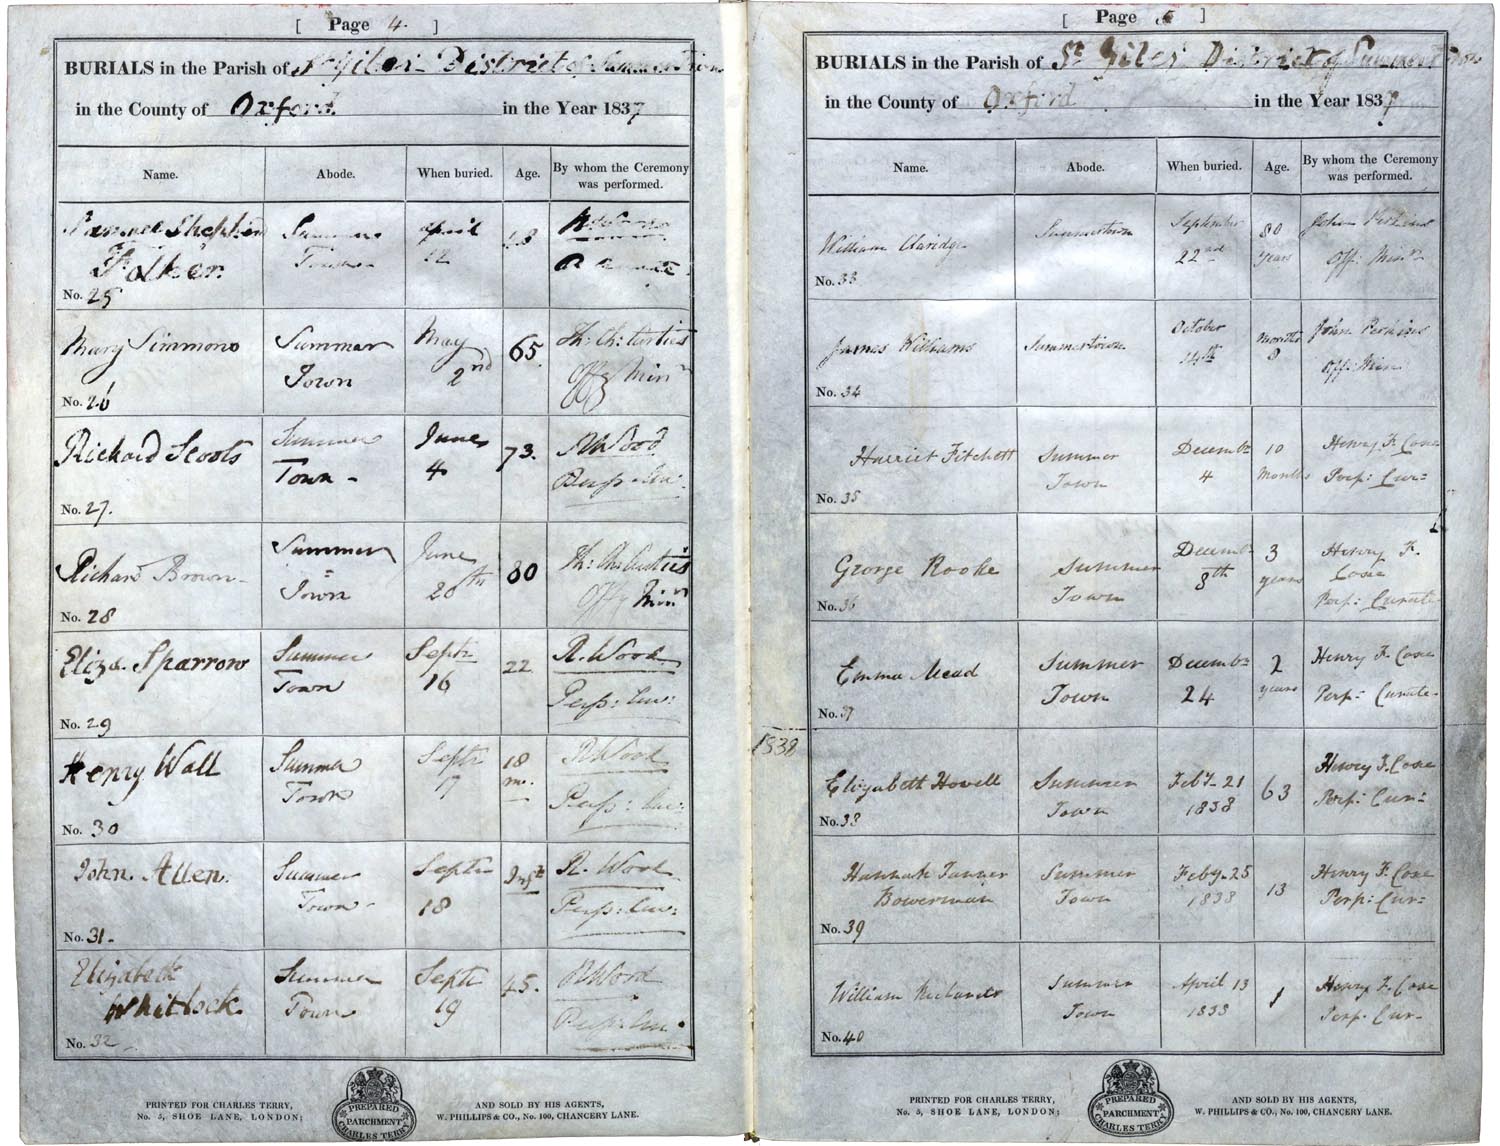 [ Page 4. ]
BURIALS in the Parish of St Giles District of Summer Town
in the County of Oxford in the Year 1837
Name.
Abode.
When buried.
Age.
By whom the Ceremony
was performed.
Samuel Stephen
Folker
No. 25
Summer
Town
April
12
Mary Simmons
No. 26
Summer
Town
May
2nd
65
Th: Ch: Curties
Offg Minr
Richard Scoots
No. 27.
Summer
Town -
June
4
73.
R Wood
Perp: Cur:
Richard Brown -
No. 28
Summer
Town
June
20th
80
Th: Ch: Curties
Offg Minr
Eliza Sparrow
No. 29
Summer
Town
Septr
16
22
R. Wood
Perp: Cur:
Henry Wall
No. 30
Summer
Town
Septr
17
18
m.
R Wood
Perp: Cur:
John Allen.
No. 31-
Summer
Town -
Septr
18
Inft
R. Wood
Perp: Cur:
Elizabeth
Whitlock
No. 32
Summer
Town
Septr
19
45.
R Wood
Perp: Cur:
PRINTED FOR CHARLES TERRY,
No. 5, SHOE LANE, LONDON;
PREPARED
PARCHMENT
CHARLES TERRY
AND SOLD BY HIS AGENTS,
W. PHILLIPS & CO., No. 100, CHANCERY LANE.
[ Page 5 ]
BURIALS in the Parish of St Giles District of Summer Town
in the County of Oxford in the Year 1837
Name.
Abode.
When buried.
Age.
By whom the Ceremony
was performed.
William Claridge
No. 33
Summertown
September
22nd
80
years
John Perkins
Off: Minr
James Williams
No. 34
Summertown
October
14th
Months
8
John Perkins
Off: Min
Harriet Fitchett
No. 35
Summer
Town
Decembr
4
10
Months
Henry F. Coxe
Perp: Cur=
George Rooke
No. 36
Summer
Town
Decembr
8th
3
years
Henry F.
Coxe
Perp: Curate
Emma Mead
No. 37
Summer
Town
Decembr
24
2
years
Henry F. Coxe
Perp: Curate-
1838
Elizabeth Howell
No. 38
Summer
Town
Feby- 21
1838
63
Henry F. Coxe
Perp: Cur=
Hannah Tanner
Bowerman
No. 39
Summer
Town
Feby- 25
1838
13
Henry F. Coxe
Perp: Cur=
William Richards
No. 40
Summer
Town
April 13
1838
1
Henry F. Coxe
Perp: Cur-
PRINTED FOR CHARLES TERRY,
No. 5, SHOE LANE, LONDON;
PREPARED
PARCHMENT
CHARLES TERRY
AND SOLD BY HIS AGENTS,
W. PHILLIPS & CO., No. 100, CHANCERY LANE.